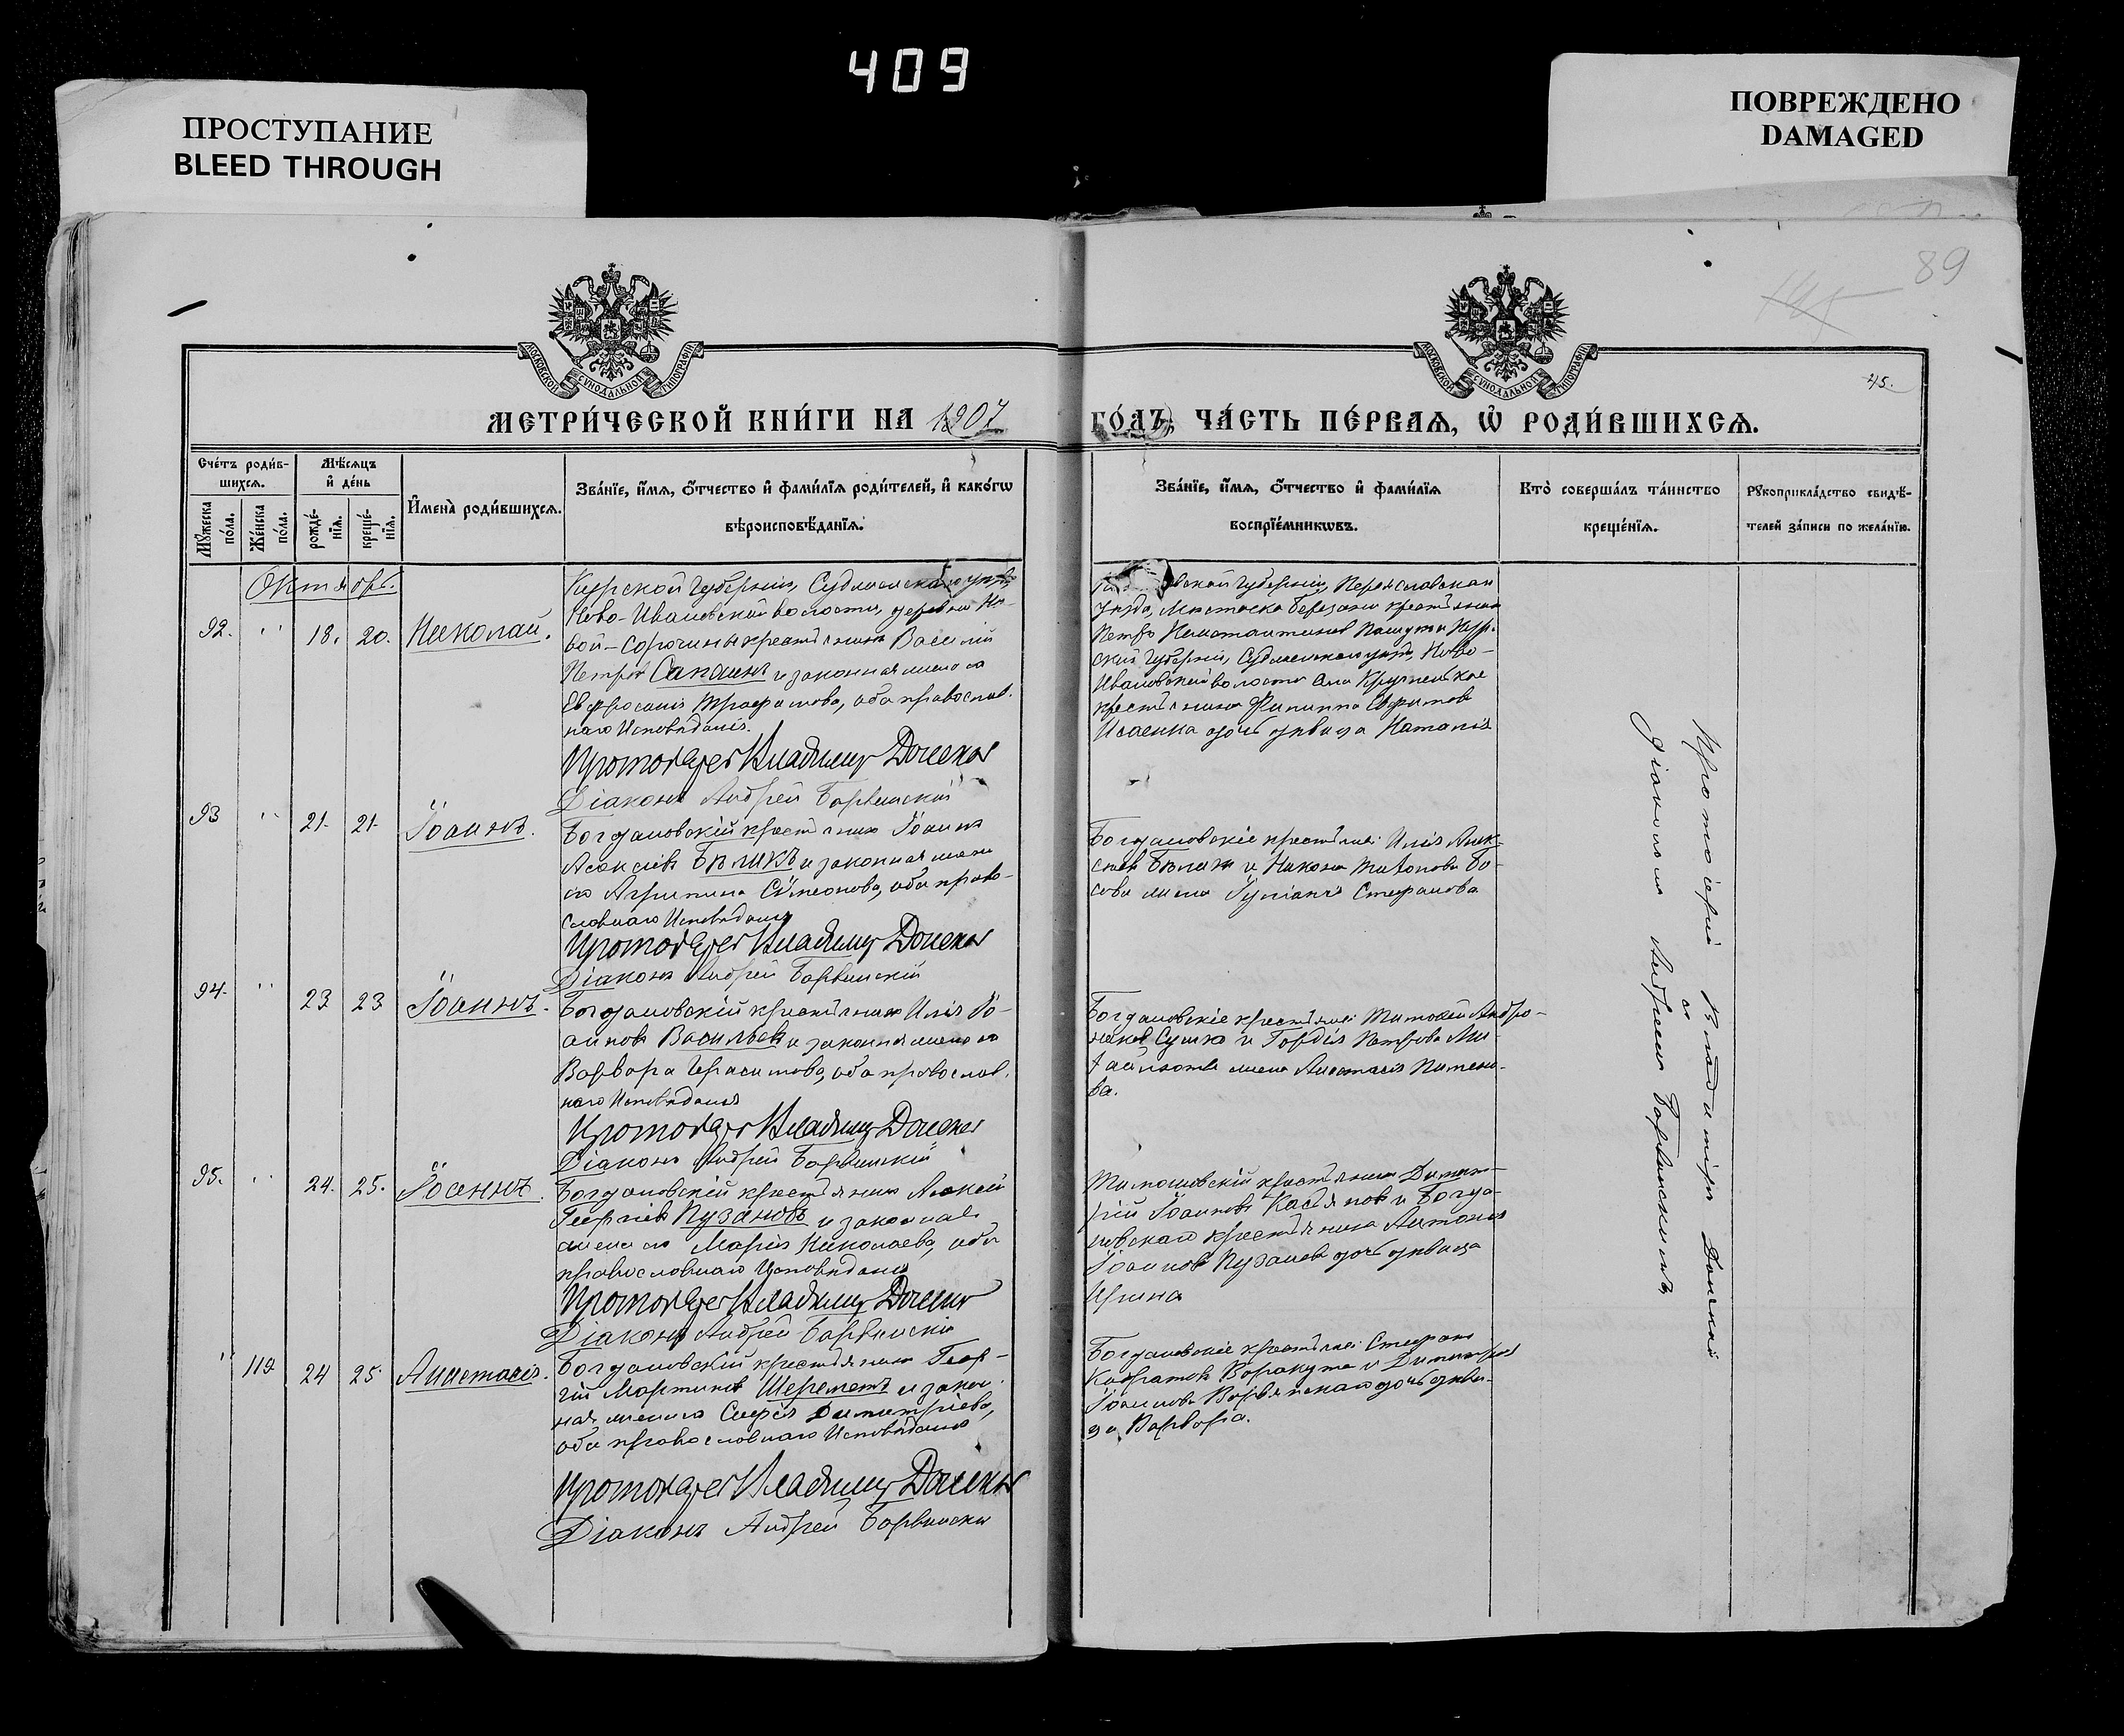 409
ПРОСТУПАНИЕ
BLEED THROUGH
ПОВРЕЖДЕНО
DAMAGED
89
45.
МОСКОВСКОЙ СУНОДАЛЬНОЙ ТИПОГРАФІИ
МОСКОВСКОЙ СУНОДАЛЬНОЙ ТИПОГРАФІИ
МЕТРИ́ЧЕСКОЙ КНИ́ГИ НА 1907 ГО́ДЪ, ЧА́СТЬ ПЕ́РВАЯ, Ѡ РОДИ́ВШИХСЯ.
Сче́тъ роди́вшихся.
Мꙋ́жеска по́ла.
Же́нска по́ла.
Мѣ́сяцъ и҆ де́нь
рожде́нїя.
креще́нїя.
И҆мена̀ роди́вшихся.
Зва́нїе, и҆́мя, ѻ҆́тчество и҆ фами́лїя роди́телей, и҆ како́гѡ
вѣроисповѣ́данїя.
Зва́нїе, и҆́мя, ѻ҆́тчество и҆ фами́лїя
воспрїе́мникѡвъ.
Кто̀ соверша́лъ та́инство
креще́нїя.
Рꙋкоприкла́дство свидѣ́-
телей за́писи по жела́нїю.
Октябрь.
92. " 18. 20. Николай.
Курской Губерніи, Суджанскаго уѣзда
Ново-Ивановской волости, деревни Но-
вой-Сорочины крестьянинъ Василій
Петровъ Сапинъ и законная жена его
Евфросинія Трофимова, оба православ.
наго Исповѣданія.
Протоіерей Владимир Донской
Діаконъ Андрей Барвинскій
вской Губерніи, Переяславскаго
уѣзда, Мѣстечка Березани крестьянинъ
Петръ Константиновъ и Кур.
ской Губерніи, Суджанскаго уѣзда, Ново-
Ивановской волости
крестьянина Филиппа
Исаенка дочь дѣвица Наталія
93 " 21. 21. Іоаннъ.
Богдановскій крестьянинъ Іоаннъ
Алексіевъ Бѣликъ и законная жена
его Агрипина Симеонова, оба право-
славнаго Исповѣданія
Протоіерей Владимир Донской
Діаконъ Андрей Барвинскій
Богдановскіе крестьяне: Илія Алек-
сіевъ Бѣликъ и
жена Іуліанія Стефанова
94. " 23 23 Іоаннъ.
Богдановскій крестьянинъ Илія Іо-
анновъ Васильевъ и законная жена его
Варвара Герасимова, оба православ.
наго Исповѣданія
Протоіерей Владимир Донской
Діаконъ Андрей Барвинскій
Богдановскіе крестьяне: Тимофей Андро-
никовъ Сушко и Гордія Петрова Ми-
жена Анастасія Пимено-
ва.
95. " 24. 25. Іоаннъ.
Богдановскій крестьянинъ Алексій
Георгіевъ Пузановъ и законная
жена его Марія Николаева, оба
православнаго Исповѣданія
Протоіерей Владимир Донской
Діаконъ Андрей Барвинскій
крестьянинъ Димит-
рій Іоанновъ Касьяновъ и Богда-
новскаго крестьянина Антонія
Іоаннова Пузанова дочь дѣвица
Ирина
" 119. 24 25. Анастасія.
Богдановскій крестьянинъ Геор-
гій Мартиновъ Шереметъ и закон-
ная жена его Софія Димитріева,
оба православнаго Исповѣданія
Протоіерей Владимир Донской
Діаконъ Андрей Барвинскій
Богдановскіе крестьяне: Стефанъ
Кодратовъ Воракута и Димитрія
Іоаннова дочь дѣви-
ца Варвара.
Протоіерей Владиміръ Донской
съ
діакономъ Андреемъ Барвинскимъ